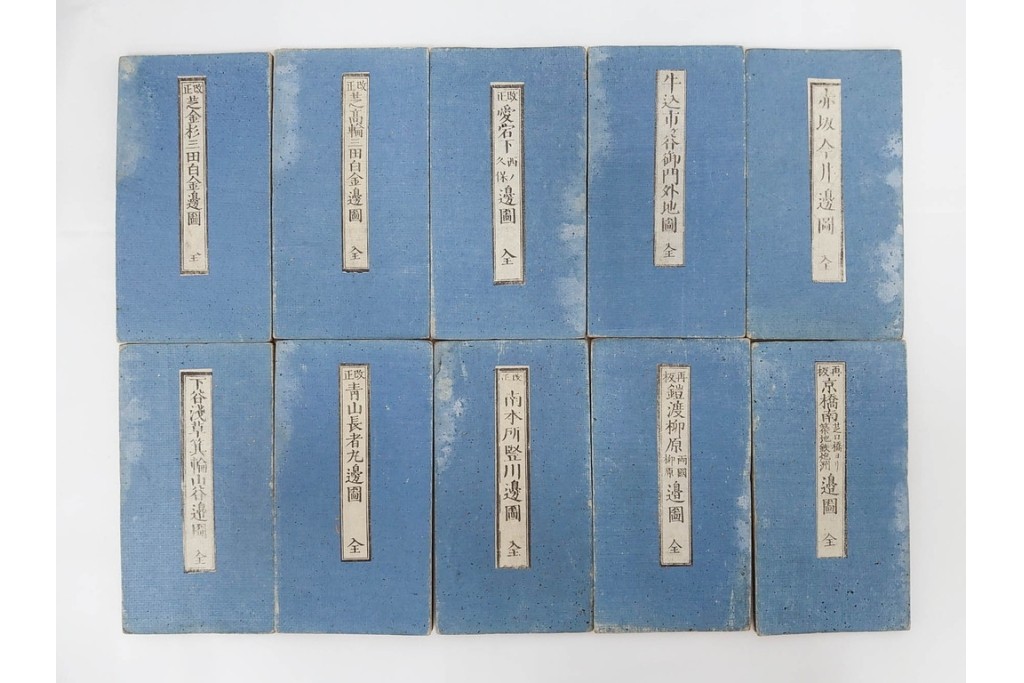 改正 芝金杉三田白金邊圖 全
改正 芝高輪三田白金邊圖 全
改正 愛宕下 西ノ久保 邊圖 全
牛込市ヶ谷御門外地圖 全
赤坂今井邊圖 全
下谷浅草箕輪山谷邊圖 全
改正 青山長者丸邊圖 全
改正 南本所竪川邊圖 全
再板 鎧渡柳原 両國 邊圖 全
再板 京橋南 芝口橋ヨリ築地鉄炮洲 邊圖 全